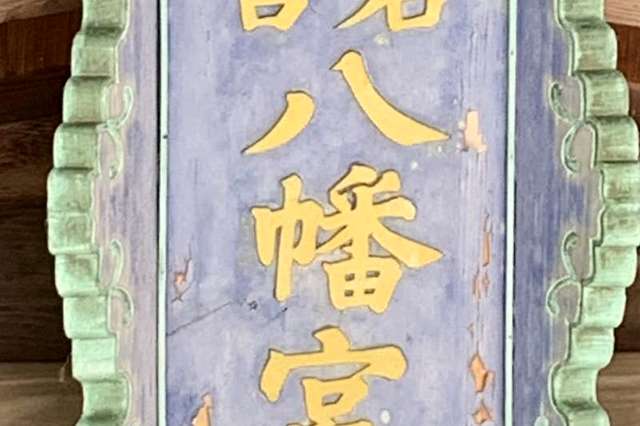 八幡宮